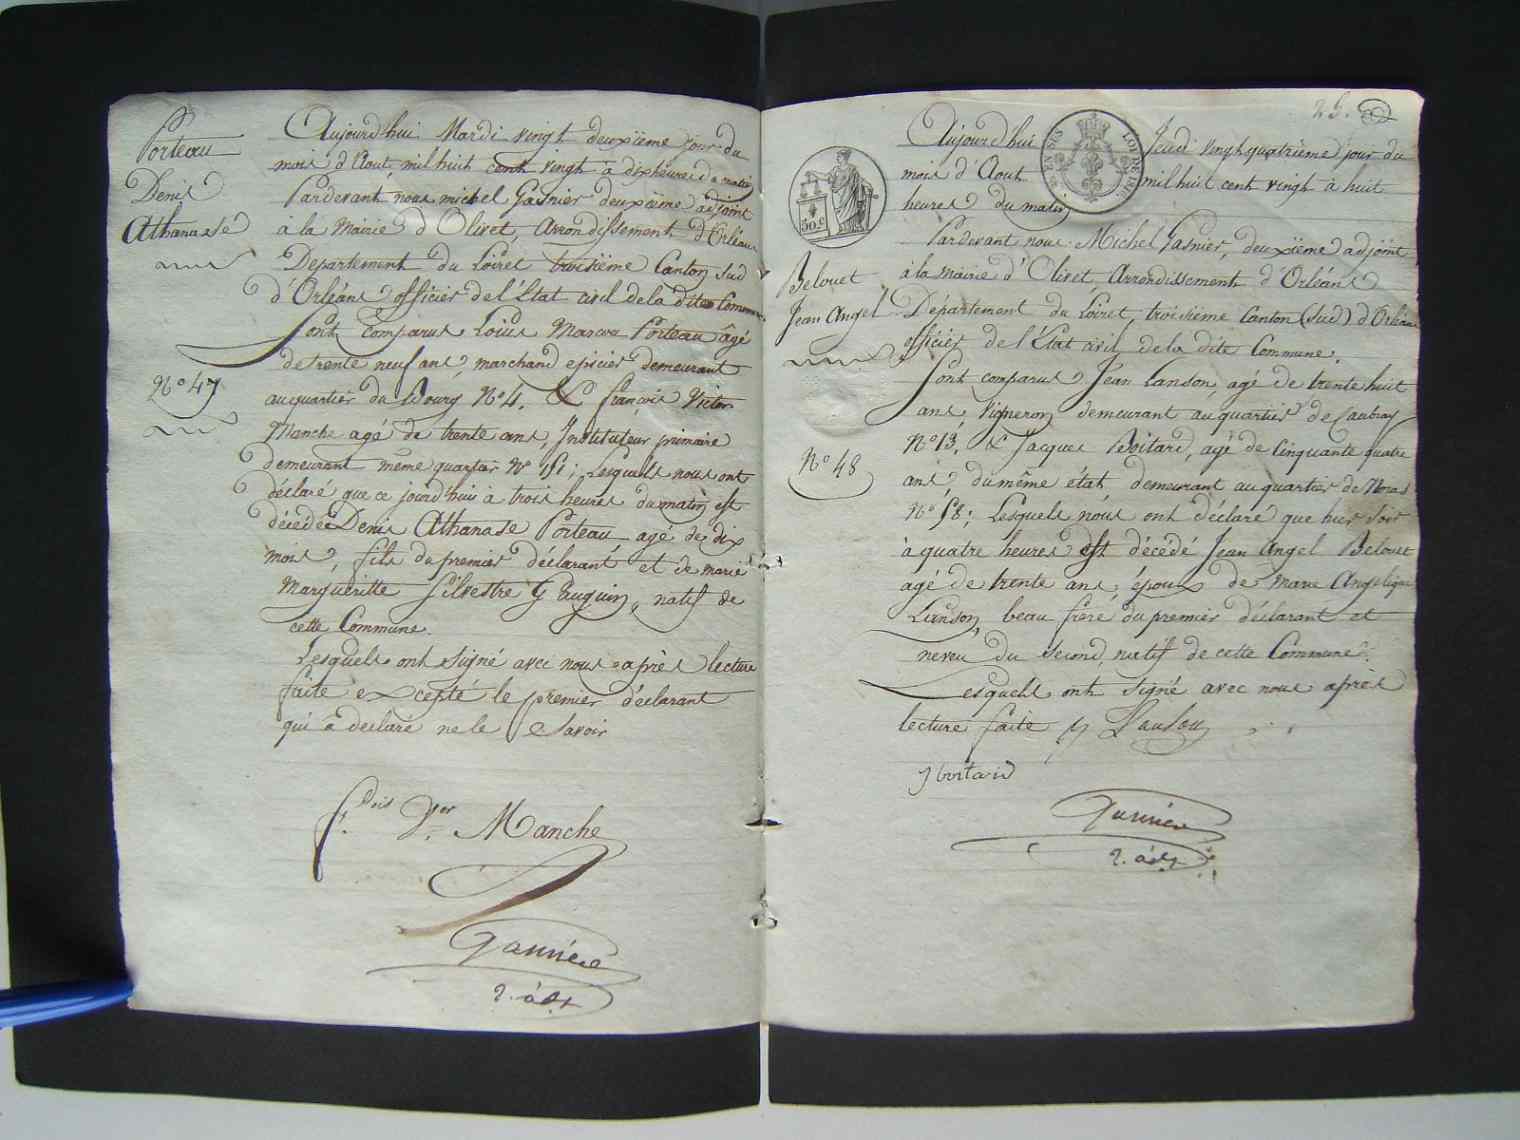 Porteau
Denis
Athanase
N° 47
Aujourd'hui Mardi vingt deuxième jour du
mois d'Aout, mil huit cent vingt à dix heures du matin
Pardevant nous michel Gasnier deuxième adjoint
à la Mairie d'Olivet, Arrondissement d'Orléans
Departement du Loiret troisième Canton sud
d'Orléans officier de l'Etat civil de la dite Commune
Sont comparus Louis Porteau âgé
de trente neuf ans, marchand epicier demeurant
au quartier du Bourg N° 4. & françois Victor
Manche agé de trente ans, Instituteur primaire
demeurant même quartier N° ; Lesquels nous ont
déclaré que ce jourd'hui à trois heures du matin est
décédé Denis Athanase Porteau agé de dix
mois, fils du premier déclarant et de marie
Margueritte Silvestre Gauguin, natif de
cette Commune.
Lesquels ont signé avec nous après lecture
faite excepté le premier déclarant
qui a declaré ne le Savoir
f.ois V.or Manche
Gasnier
2. adjt
25.
EN SUS
LOI DE 1816
50 c
Belouet
Jean Angel
N° 48
Aujourd'hui Jeudi vingt quatrième jour du
mois d'Aout mil huit cent vingt à huit
heures du matin
Pardevant nous Michel Gasnier, deuxième adjoint
à la Mairie d'Olivet, Arrondissement d'Orléans
Département du Loiret, troisième Canton (Sud) d'Orléans
officier de l'Etat civil de la dite Commune.
Sont comparus Jean Lanson, agé de trente huit
ans, Vigneron demeurant au quartier de Caubray
N° 13, & Jacques Boitard, agé de Cinquante quatre
ans du même état demeurant au quartier de Noras
N° 58; Lesquels nous ont déclaré que hier soir
à quatre heures est décédé Jean Angel Belouet
agé de trente ans, époux de Marie Angelique
Lanson, beau frère du premier déclarant et
neveu du second, natif de cette Commune.
Lesquels ont signé avec nous après
lecture faite J Lanson
J boitard
Gasnier
2. adjt